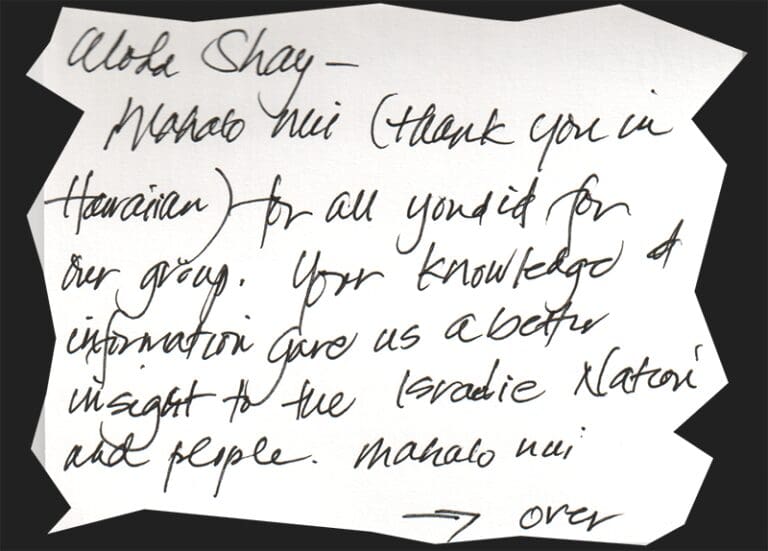 Aloha Shay –
Mahalo nui (thank you in
Hawaiian) for all you did for
our group. Your knowledge &
information gave us a better
insight to the Israelie Nation
and people. Mahalo nui
→ over